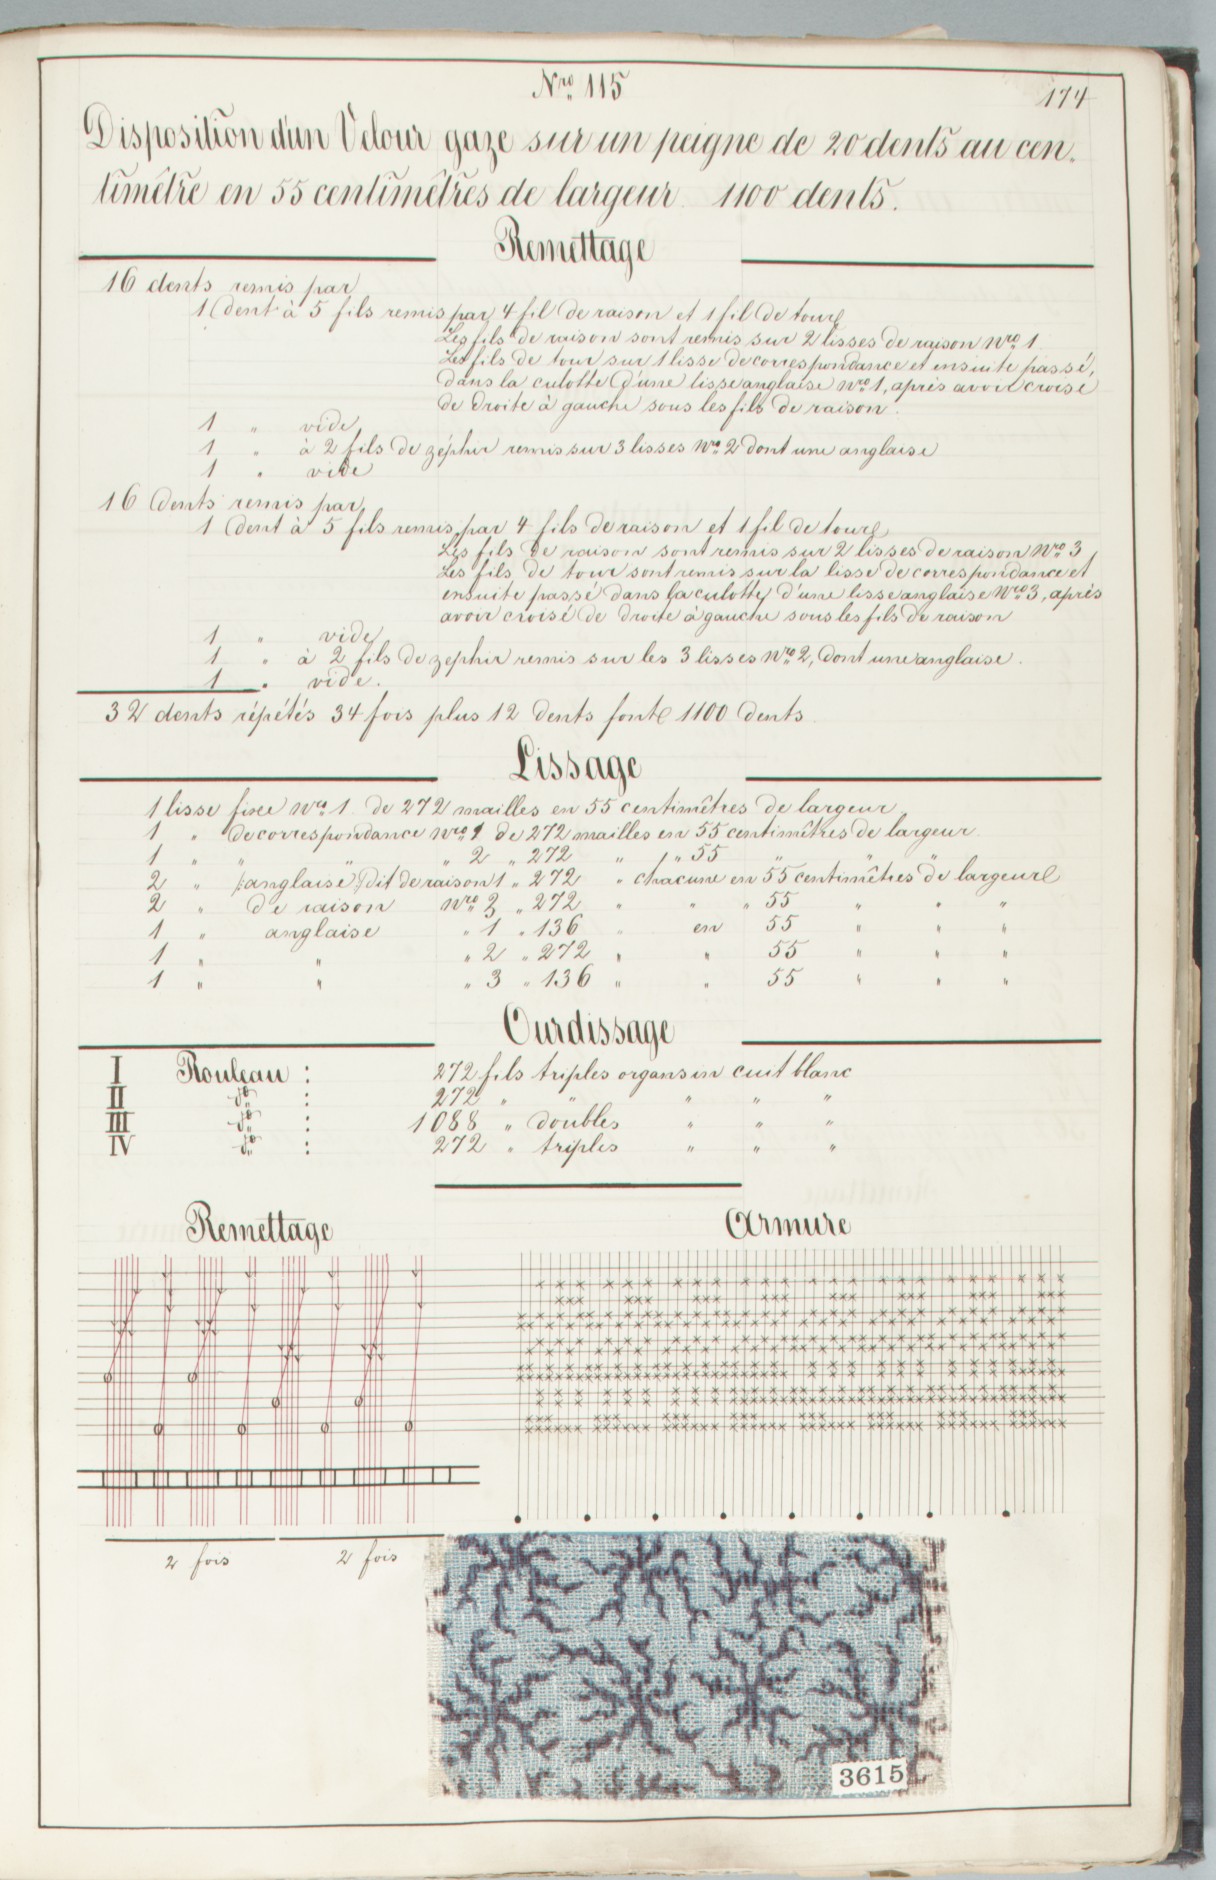 Nro 115
174
Disposition d'un Velour gaze sur un peigne de 20 dents au cen.
timêtre en 55 centimêtres de largeur. 1100 dents.
Remettage
16 dents remis par
1 Dent à 5 fils remis par 4 fil de raison et 1 fil de tour
Les fils de raison sont remis sur 2 lisses de raison Nro 1
Les fils de tour sur 1 lisse de correspondance et ensuite passé,
dans la culotte d'une lisse anglaise Nro 1, après avoir croisé
de droite à gauche sous les fils de raison.
1 " vide
1 " à 2 fils de zéphir remis sur 3 lisses Nro 2 dont une anglaise
1 " vide
16 Dents remis par
1 Dent à 5 fils remis par 4 fils de raison et 1 fil de tour
Les fils de raison sont remis sur 2 lisses de raison Nro 3
Les fils de tour sont remis sur la lisse de correspondance et
ensuite passé dans la culotte d'une lisse anglaise Nro 3, après
avoir croisé de droite à gauche sous les fils de raison
1 " vide
1 " à 2 fils de zephir remis sur les 3 lisses Nro 2, dont une anglaise.
1 " vide.
32 dents répétés 34 fois plus 12 Dents font 1100 Dents
Lissage
1 lisse fixe Nro 1 de 272 mailles en 55 centimêtres de largeur
1 " de correspondance Nro 1 de 272 mailles en 55 centimêtres de largeur.
1 " " " " 2 " 272 " " 55 " " "
2 " anglaise dit de raison 1 " 272 " chacune en 55 centimêtres de largeur
2 " de raison Nro 3 " 272 " " " 55 " " "
1 " anglaise " 1 " 136 " en 55 " " "
1 " " " 2 " 272 " " 55 " " "
1 " " " 3 " 136 " " 55 " " "
Ourdissage
I Rouleau : 272 fils triples organsin cuit blanc
II do : 272 " " " " "
III do : 1088 " doubles " " "
IV do : 272 " triples " " "
Remettage
Armure
2 fois 2 fois
3615